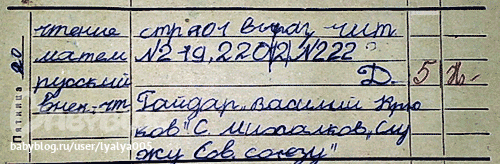 Пятница 20
чтение стр 101 выраз. чит.
матем № 219, 220(2), № 222
русский Д. 5
внек. чт Гайдар „Василий Крю
ков" С. Михалков „Слу
жу Сов. союзу"
babyblog.ru/user/lyalya005